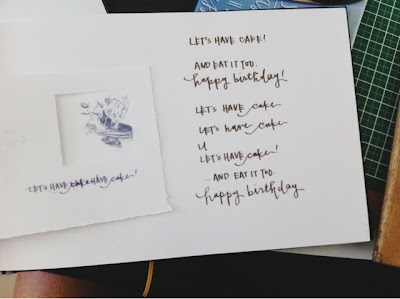 LET'S HAVE CAKE!
AND EAT IT TOO.
happy birthday!
LET'S HAVE cake
LET'S have cake
LET'S HAVE cake!
..AND EAT IT TOO.
happy birthday
LET'S HAVE cake HAVE cake!